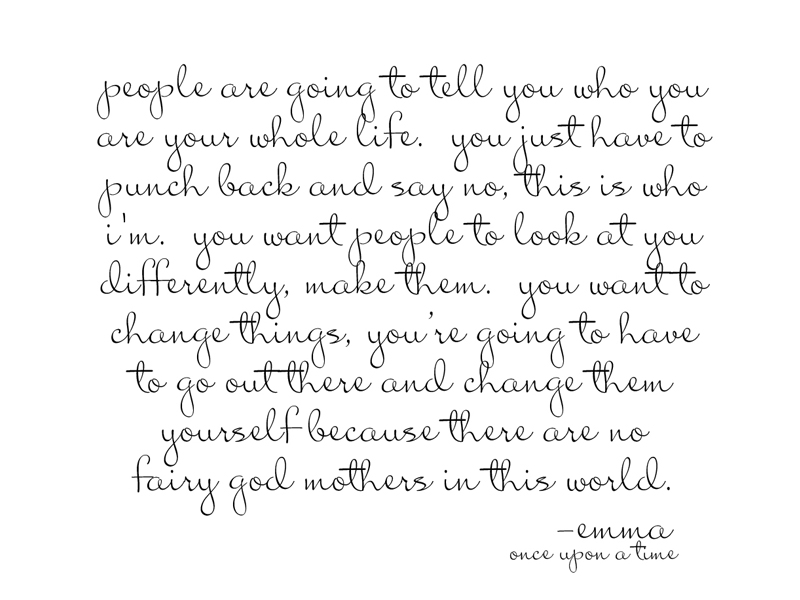 people are going to tell you who you
are your whole life.  you just have to
punch back and say no, this is who
i'm.  you want people to look at you
differently, make them.  you want to
change things, you're going to have
to go out there and change them
yourself because there are no
fairy god mothers in this world.
-emma
once upon a time